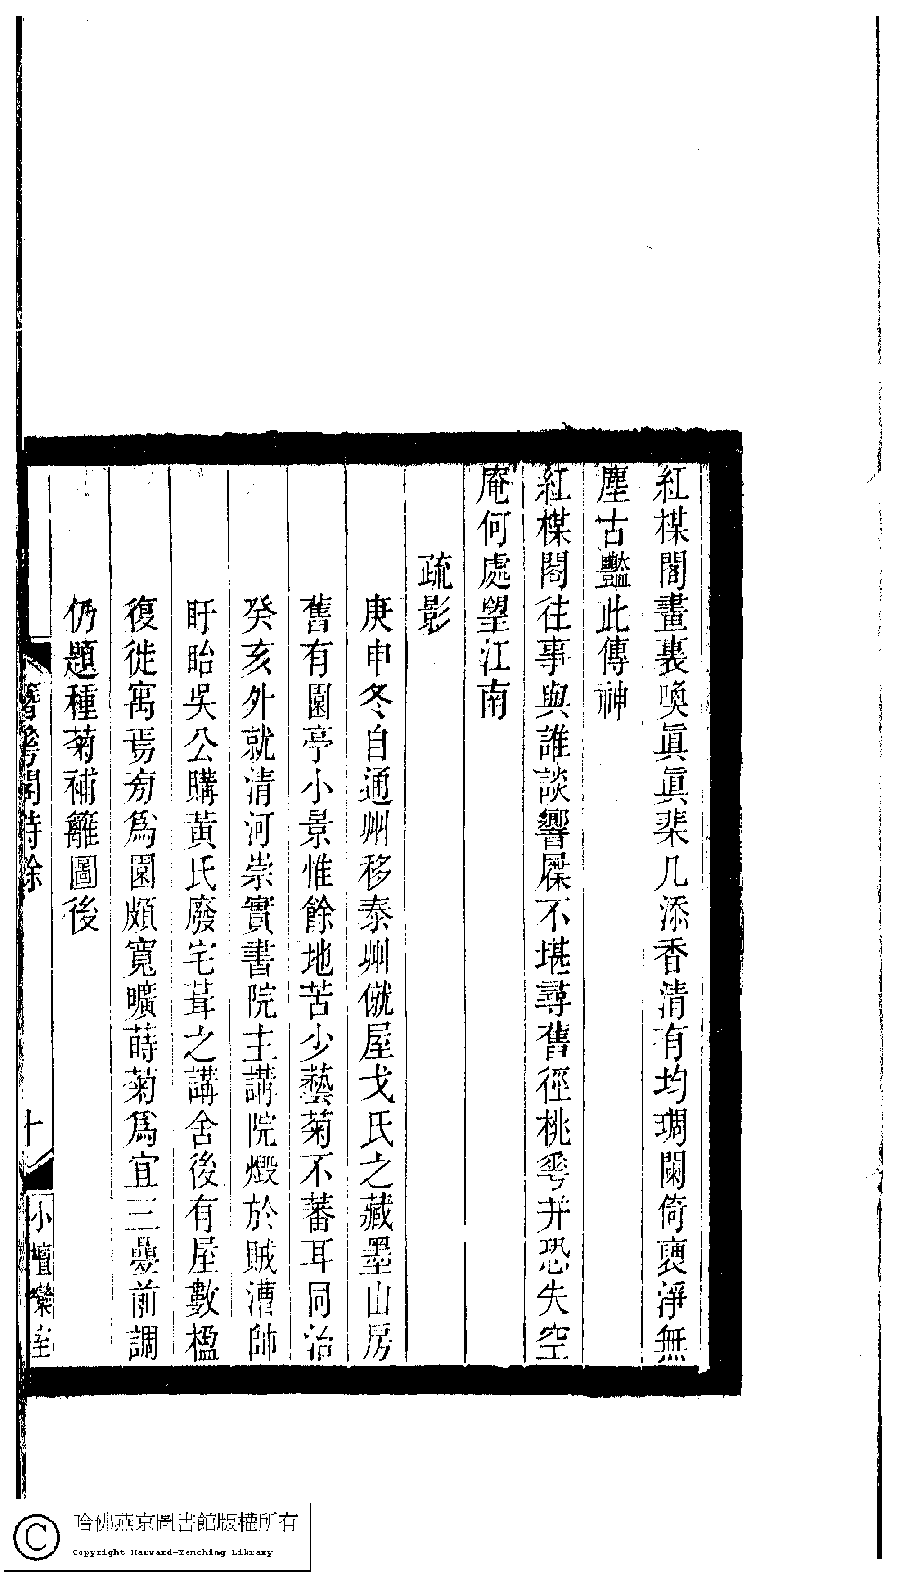 紅楳閣畫裏喚眞眞棐几添香清有均琱闌倚褏淨無
塵古豔此傳神
紅楳閣往事與誰談響屧不堪尋舊徑桃雩幷恐失空
庵何處望江南
疏影
庚申冬自通州移泰州僦屋戈氏之藏墨山房
舊有園亭小景惟餘地苦少藝菊不蕃耳同治
癸亥外就清河崇實書院主講院燬於賊漕帥
盱眙吳公購黃氏廢宅葺之講舍後有屋數楹
復徙寓焉旁爲園頗寬曠蒔菊爲宜三疊前調
仍題種菊補籬圖後
詩餘
十
小檀欒室
哈佛燕京圖書館版權所有
Copyright Harvard-Yenching Library